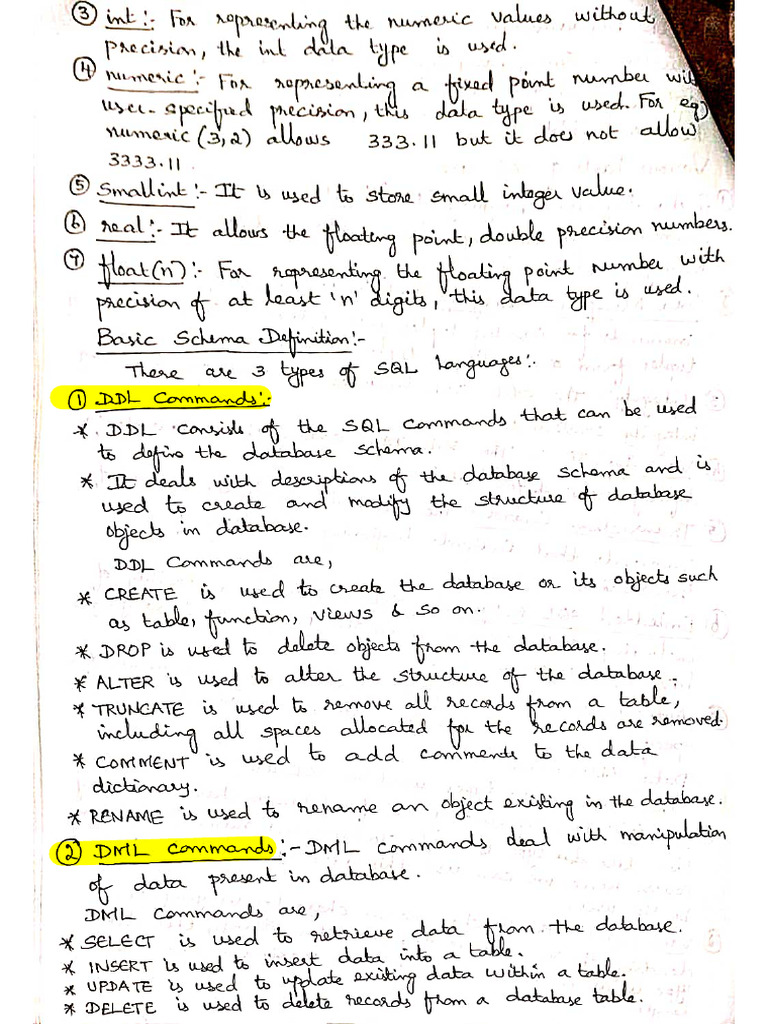 ③ int :- For representing the numeric values, without
precision, the int data type is used.
④ numeric :- For representing a fixed point number with
user-specified precision, this data type is used. For eg)
numeric (3,2) allows 333.11 but it does not allow
3333.11
⑤ Smallint :- It is used to store small integer value.
⑥ real :- It allows the floating point, double precision numbers.
⑦ float(n) :- For representing the floating point number with
precision of at least 'n' digits, this data type is used.
Basic Schema Definition :-
There are 3 types of SQL languages :-
① DDL Commands :-
* DDL consists of the SQL commands that can be used
to define the database schema.
* It deals with descriptions of the database schema and is
used to create and modify the structure of database
objects in database.
DDL Commands are,
* CREATE is used to create the database or its objects such
as table, function, views & so on.
* DROP is used to delete objects from the database.
* ALTER is used to alter the structure of the database.
* TRUNCATE is used to remove all records from a table,
including all spaces allocated for the records are removed.
* COMMENT is used to add comments to the data
dictionary.
* RENAME is used to rename an object existing in the database.
② DML Commands :- DML commands deal with manipulation
of data present in database.
DML Commands are,
* SELECT is used to retrieve data from the database.
* INSERT is used to insert data into a table.
* UPDATE is used to update existing data within a table.
* DELETE is used to delete records from a database table.